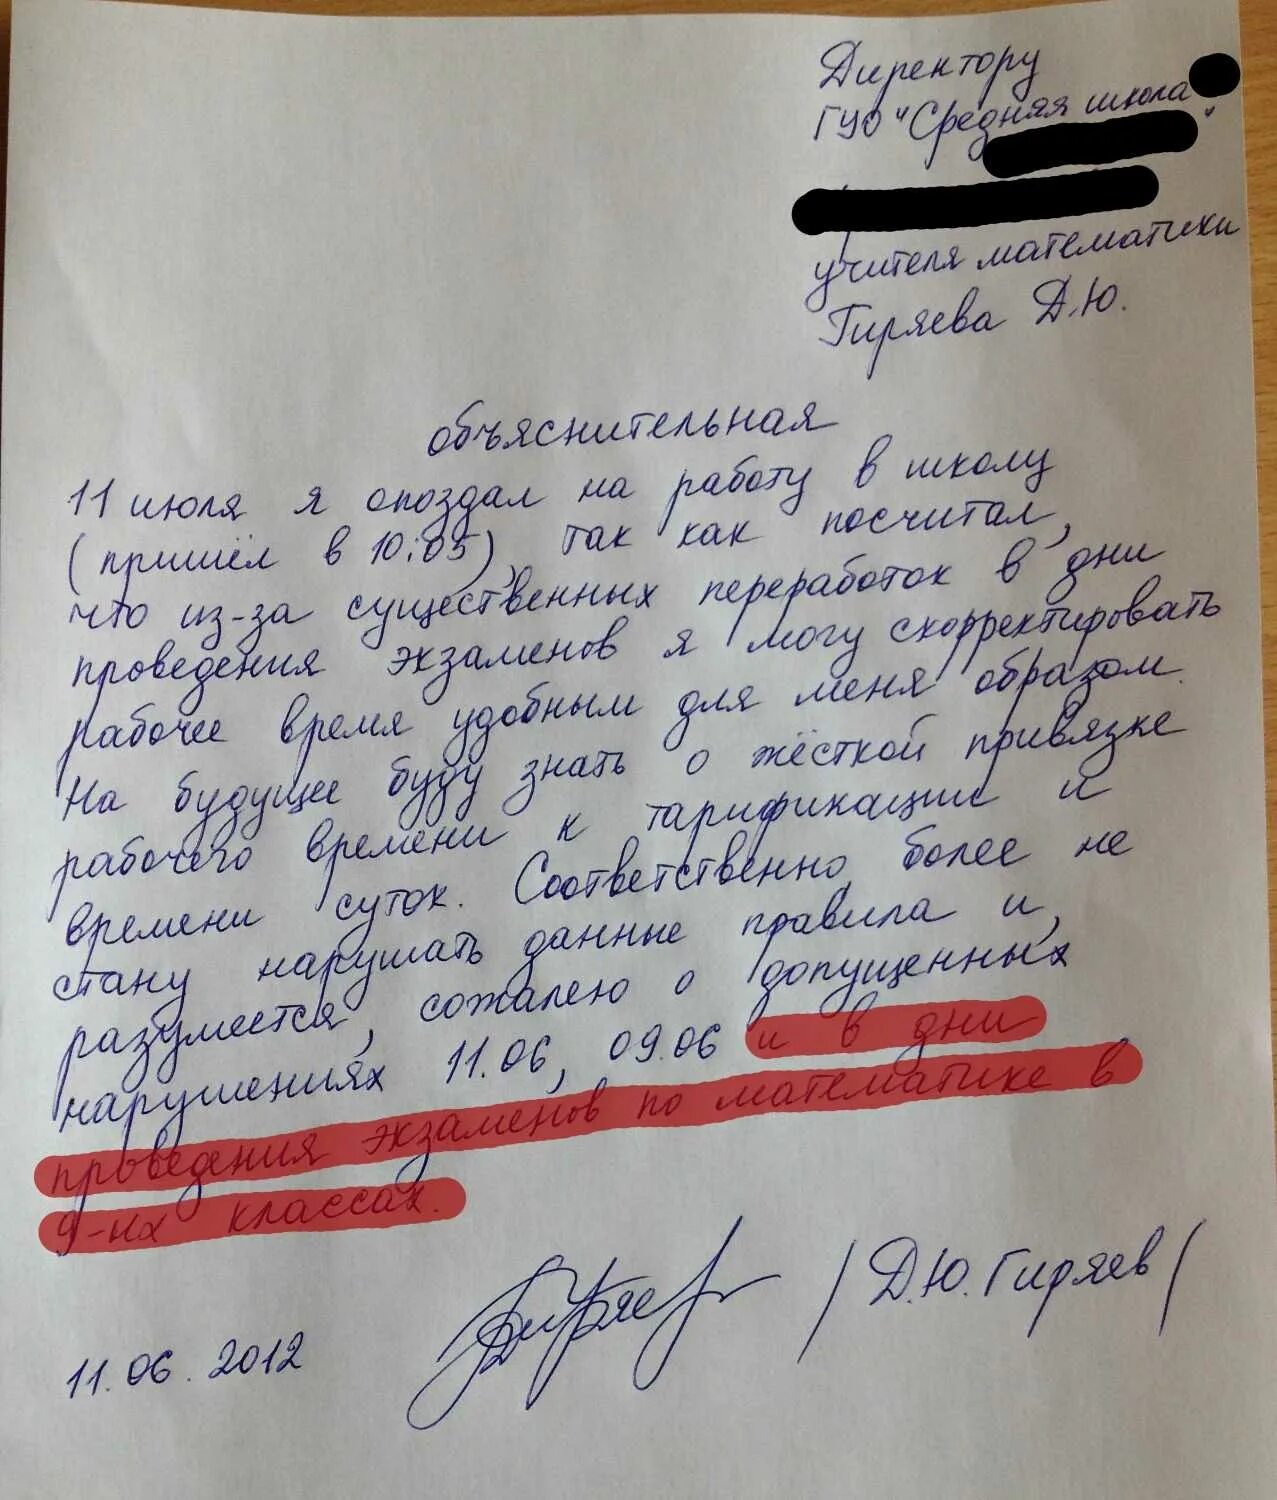 Директору
ГУО "Средняя школа
"
учителя математики
Гиряева Д.Ю.
объяснительная
11 июля я опоздал на работу в школу
(пришёл в 10:05), так как посчитал,
что из-за существенных переработок в дни
проведения экзаменов я могу скорректировать
рабочее время удобным для меня образом.
На будущее буду знать о жёсткой привязке
рабочего времени к тарификации и
времени суток. Соответственно более не
стану нарушать данные правила и,
разумеется, сожалею о допущенных
нарушениях 11.06, 09.06 и в дни
проведения экзаменов по математике в
9-ых классах.
/Д.Ю. Гиряев/
11.06.2012